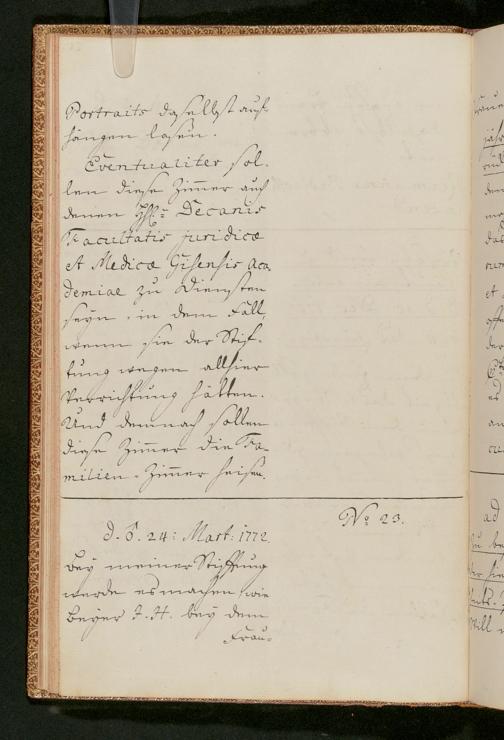 Portraits daselbst auf-
hängen lasen.
Eventualiter sol-
len diese Zimmer auch
denen Hh: Decanis
Facultatis juridicæ
et Medicæ Gisensis Aca-
demiae zu Diensten
seyn, in dem Fall,
wenn sie der Stif-
tung wegen allhier
Verrichtung hätten.
Und demnach sollen
diese Zimmer die Fa-
milien-Zimmer heisen.
No 23.
d. 24: Mart: 1772.
Bey meiner Stifftung
werde es machen wie
Beyer J. H. bey dem
Frau-